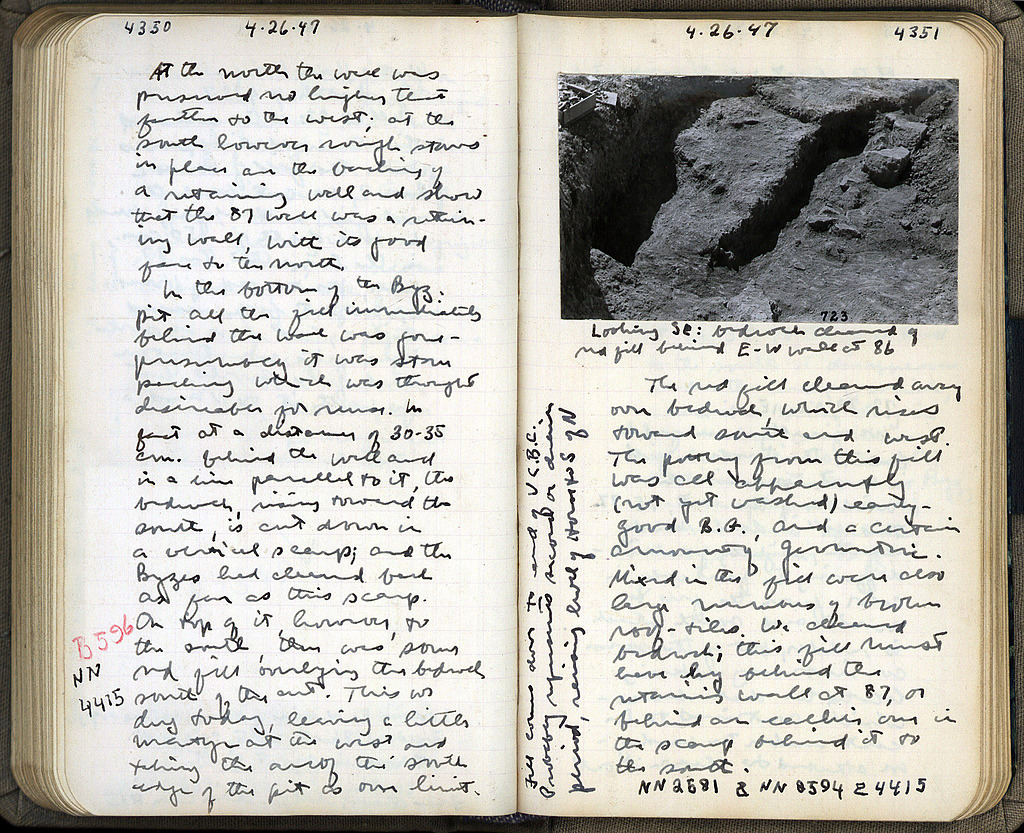 4330
4.26.47
At the north the wall was
preserved no higher than
further to the west; at the
south however rough stones
in place are the backing of
a retaining wall and show
that the 87 wall was a retain-
ing wall, with its good
face to the north.
In the bottom of the Byz.
pit all the fill immediately
behind the wall was gone –
presumably it was stone
packing which was thought
desireable for reuse. In
fact at a distance of 30-35
cm. behind the wall and
in a line parallel to it, the
bedrock, rising toward the
south, is cut down in
a vertical scarp; and the
Byzes had cleared back
as far as this scarp.
On top of it, however, to
the south, there was some
red fill overlying the bedrock
south of the cut. This we
dug today, leaving a little
martyr at the west and
taking the
south
edge of the pit as our limit.
B 596
NN
4415
4.26.47
4351
723
Looking SE: bedrock cleared of
red fill behind E-W wall at 86
The red fill cleared away
over bedrock, which rises
toward south and west.
The pottery from this fill
was all apparently
(not yet washed) early –
good B.F., and a certain
amount Geometric.
Mixed in the fill were also
large numbers of broken
roof-tiles. We cleared
bedrock; this fill must
have lay behind the
retaining wall at 87, or
behind an earlier one in
the scarp behind it to
the south.
NN2681 & NN 8594 Z 4415
Fill comes down to end of V C.B.C.
Probably represents second
period, raising level of House to S of N